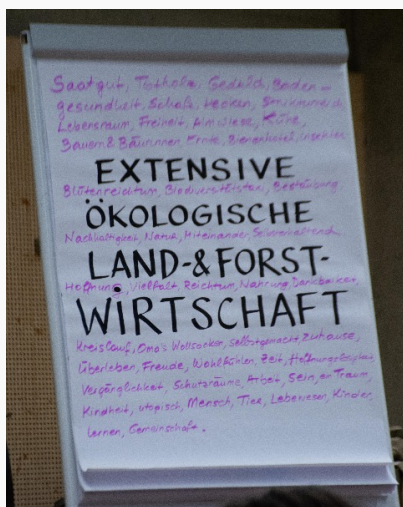 Saatgut, Totholz, Geduld, Boden-
gesundheit, Schafe, Hecken, Strukturreich
Lebensraum, Freiheit, Almwiese, Kühe,
Bauern & Bäurinnen, Ernte, Bienenhotel, Insekten
EXTENSIVE
Blütenreichtum, Biodiversität, Bestäubung
ÖKOLOGISCHE
Nachhaltigkeit, Natur, Miteinander,
LAND-& FORST-
Hoffnung, Vielfalt, Reichtum, Nahrung, Dankbarkeit,
WIRTSCHAFT
Kreislauf, Oma's Wollsocken, selbstgemacht, Zuhause,
Überleben, Freude, Wohlfühlen, Zeit,
Vergänglichkeit, Schutzräume, Arbeit, Sein, ein Traum,
Kindheit, utopisch, Mensch, Tier, Lebewesen, Kinder,
Lernen, Gemeinschaft.